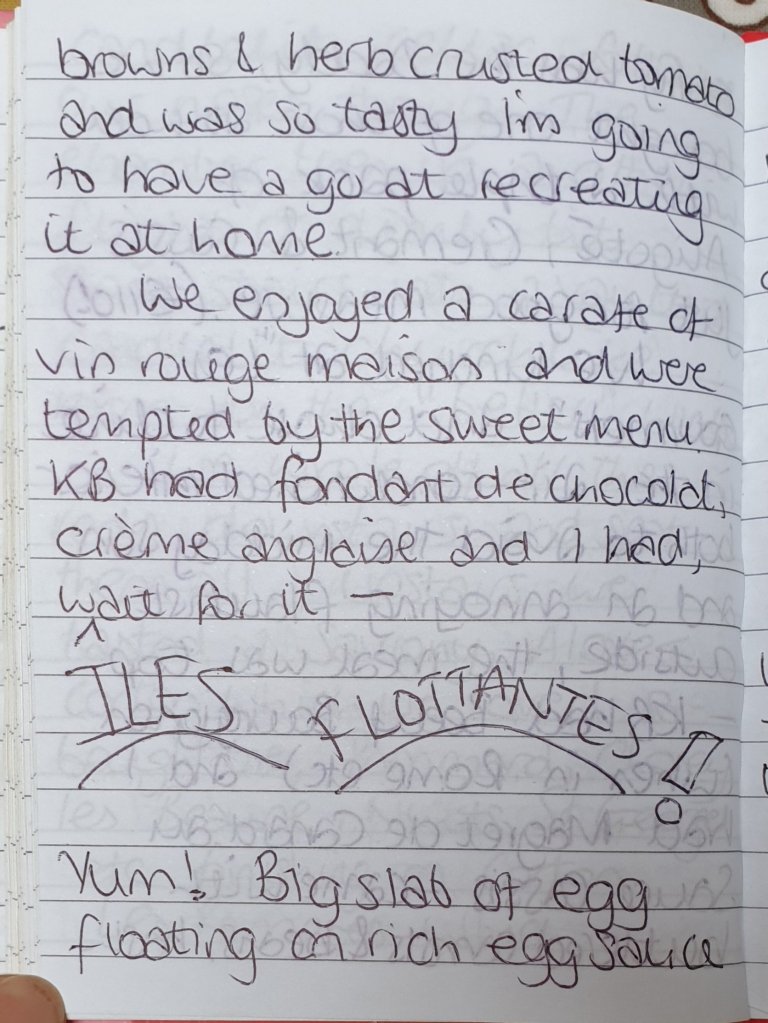 browns & herb crusted tomato
and was so tasty I'm going
to have a go at recreating
it at home.
We enjoyed a carafe of
vin rouge maison and were
tempted by the sweet menu.
KB had fondant de chocolat,
crème anglaise and I had,
wait for it –
ILES FLOTTANTES!
Yum! Big slab of egg
floating on rich egg sauce